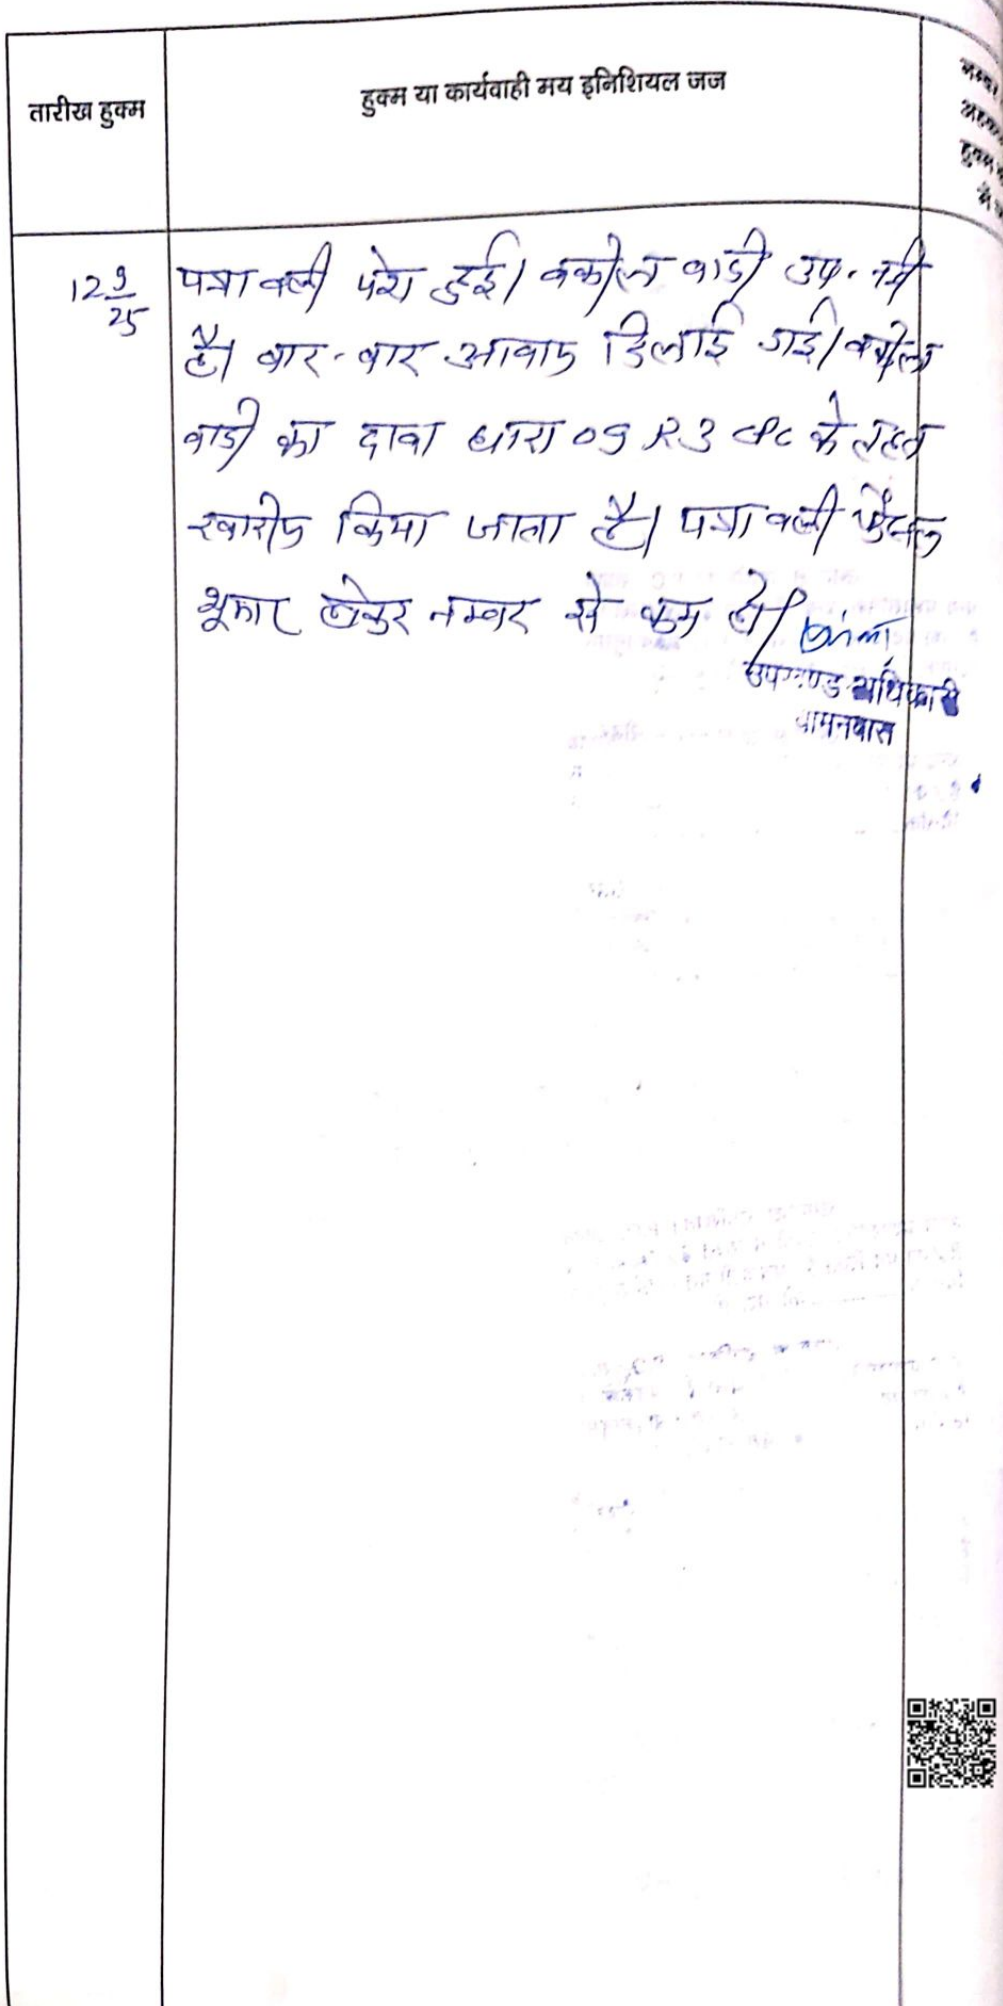 तारीख हुक्म
हुक्म या कार्यवाही मय इनिशियल जज
12 9/25
पत्रावली पेश हुई। वकील वादी उप. नही
है। बार-बार आवाज दिलाई गई। वकील
वादी का दावा धारा 09 R3 CPC के तहत
खारीज किया जाता है। पत्रावली फैसल
शुमार होकर नम्बर से कम हो।
उपखण्ड अधिकारी
बामनवास